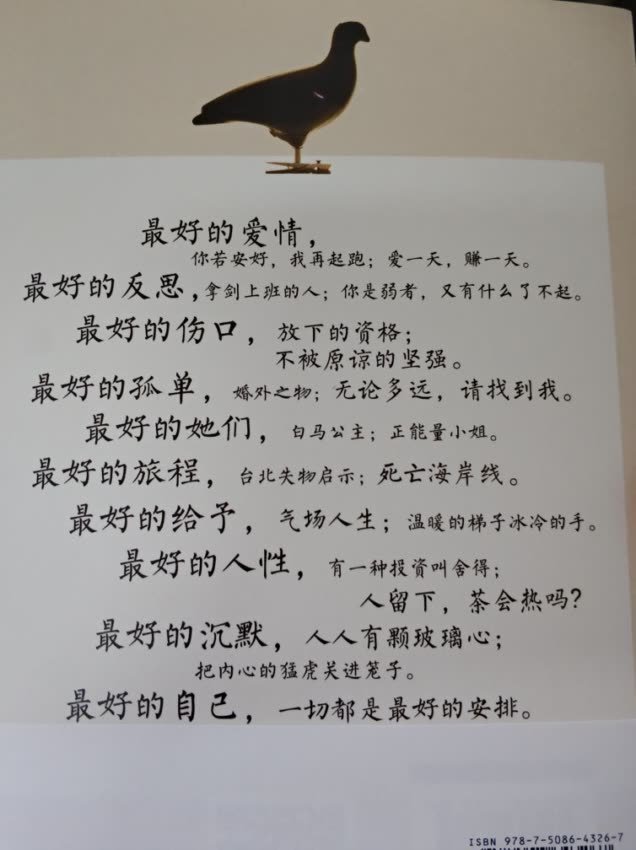 最好的爱情，
你若安好，我再起跑；爱一天，赚一天。
最好的反思，拿剑上班的人；你是弱者，又有什么了不起。
最好的伤口，放下的资格；
不被原谅的坚强。
最好的孤单，婚外之物；无论多远，请找到我。
最好的她们，白马公主；正能量小姐。
最好的旅程，台北失物启示；死亡海岸线。
最好的给予，气场人生；温暖的梯子冰冷的手。
最好的人性，有一种投资叫舍得；
人留下，茶会热吗？
最好的沉默，人人有颗玻璃心；
把内心的猛虎关进笼子。
最好的自己，一切都是最好的安排。
ISBN 978-7-5086-4326-7